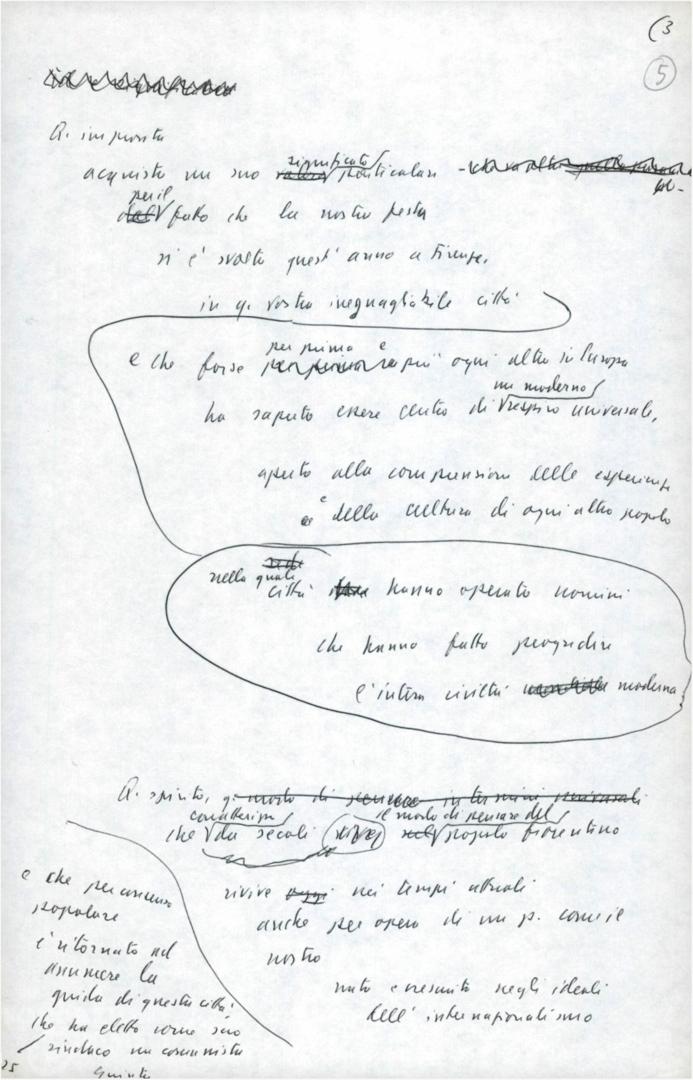 (3
5
Q. imposta
acquista un suo significato particolare
per il fatto che la nostra festa
si è svolta quest'anno a Firenze,
in q. vostra ineguagliabile città
e che forse per prima e più ogni altra in Europa
ha saputo essere centro di un moderno respiro universale,
aperto alla comprensione delle esperienze
e della cultura di ogni altro popolo
nella quale
città hanno operato uomini
che hanno fatto progredire
l'intera civiltà moderna
Q. spirito,
che da secoli il modo di pensare del popolo fiorentino
rivive nei tempi attuali
anche per opera di un p. come il
nostro
nato e cresciuto negli ideali
dell'internazionalismo
e che per consenso
popolare
è ritornato ad
assumere la
guida di questa città
che ha eletto come suo
sindaco un comunista
25